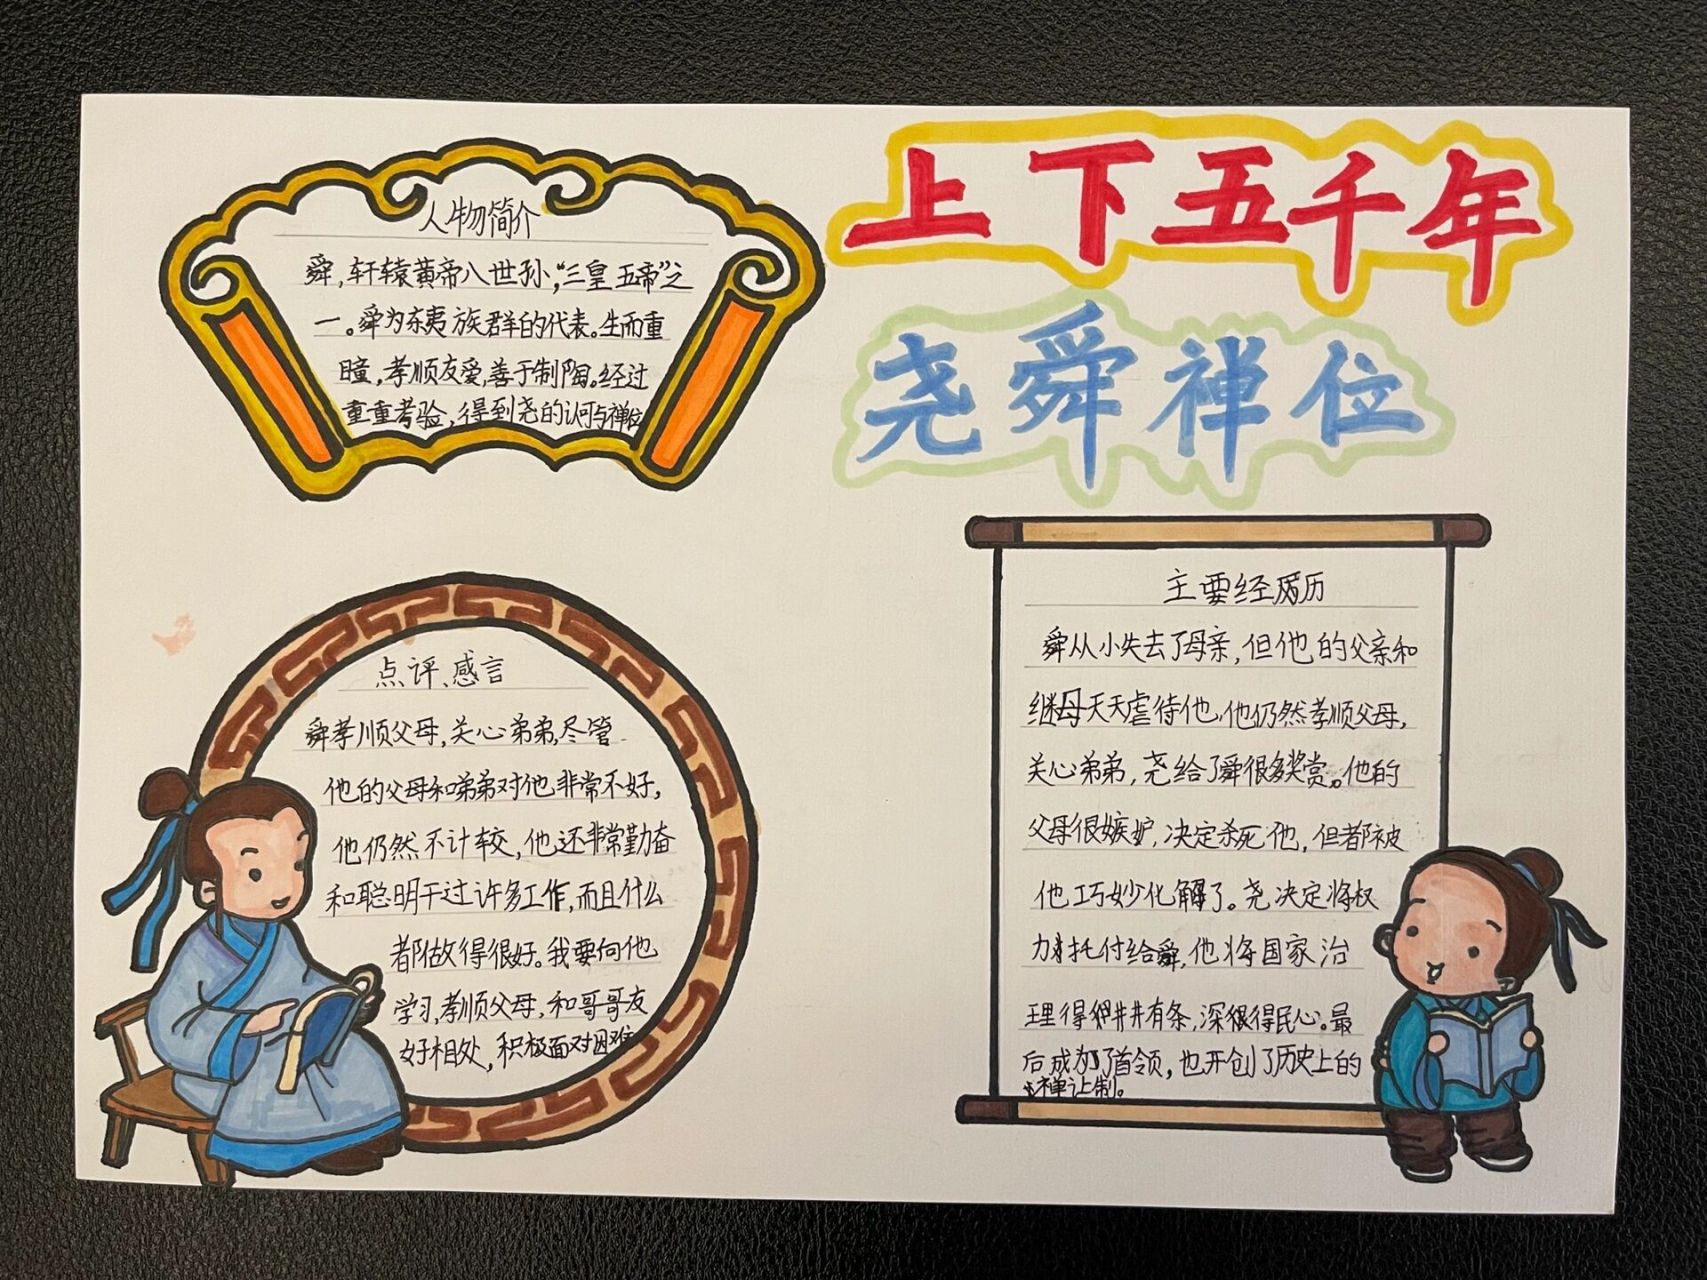 上下五千年
尧舜禅位
人物简介
舜,轩辕黄帝八世孙,“三皇五帝”之
一。舜为东夷族群的代表。生而重
瞳,孝顺友爱,善于制陶。经过
重重考验,得到尧的认可与禅位
点评、感言
舜孝顺父母,关心弟弟,尽管
他的父母和弟弟对他非常不好,
他仍然不计较,他还非常勤奋
和聪明干过许多工作,而且什么
都做得很好。我要向他
学习,孝顺父母,和哥哥友
好相处,积极面对困难
主要经历
舜从小失去了母亲,但他的父亲和
继母天天虐待他,他仍然孝顺父母,
关心弟弟,尧给了舜很多奖赏。他的
父母很嫉妒,决定杀死他,但都被
他巧妙化解了。尧决定将权
力托付给舜,他将国家治
理得井井有条,深得民心。最
后成为了首领,也开创了历史上的
禅让制。